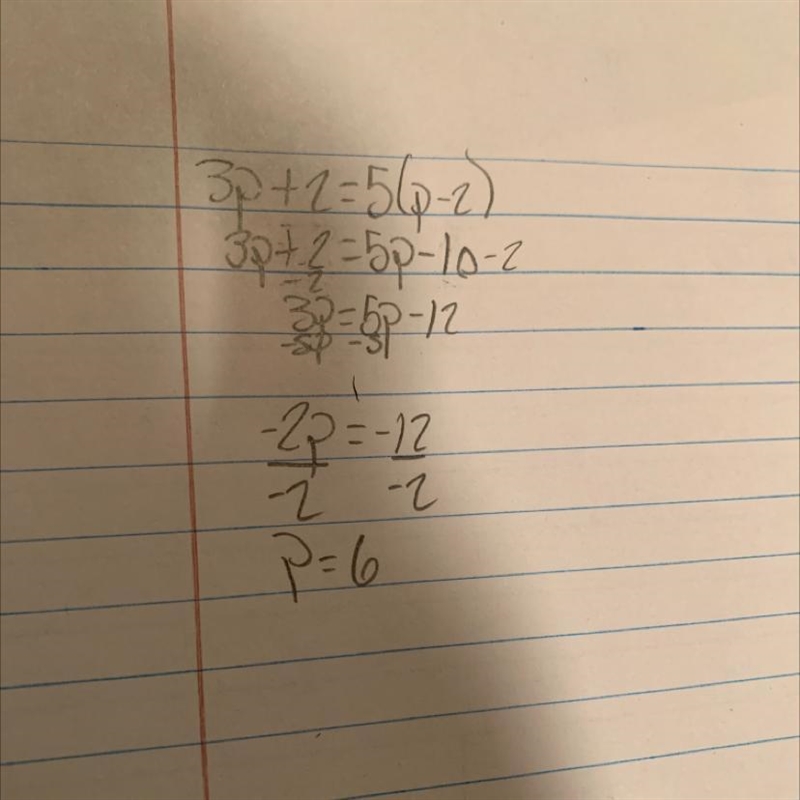 3p+2=5(p-2)
3p+2=5p-10-2
-2
3p=5p-12
-5p -5p
-2p=-12
-2 -2
p=6